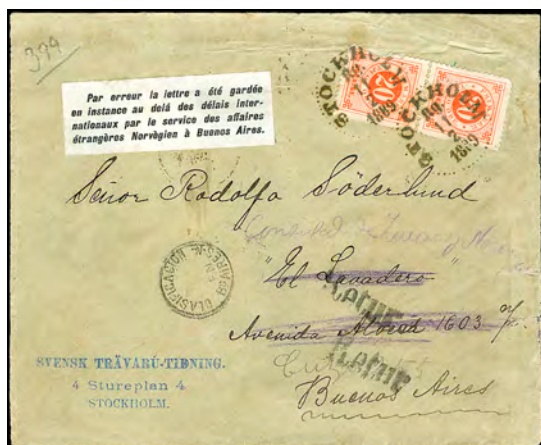 394
Par erreur la lettre a été gardée
en instance au delà des délais inter-
nationaux par le service des affaires
étrangères Norvègien à Buenos Aires.
STOCKHOLM
1889
20
STOCKHOLM
1889
20
Señor Rodolfo Söderlund
Consulado de Suecia y
"El Lavadero"
Avenida Alvear 1603
Buenos Aires
CLASIFICACION
SVENSK TRÄVARU-TIDNING.
4 Stureplan 4
STOCKHOLM.